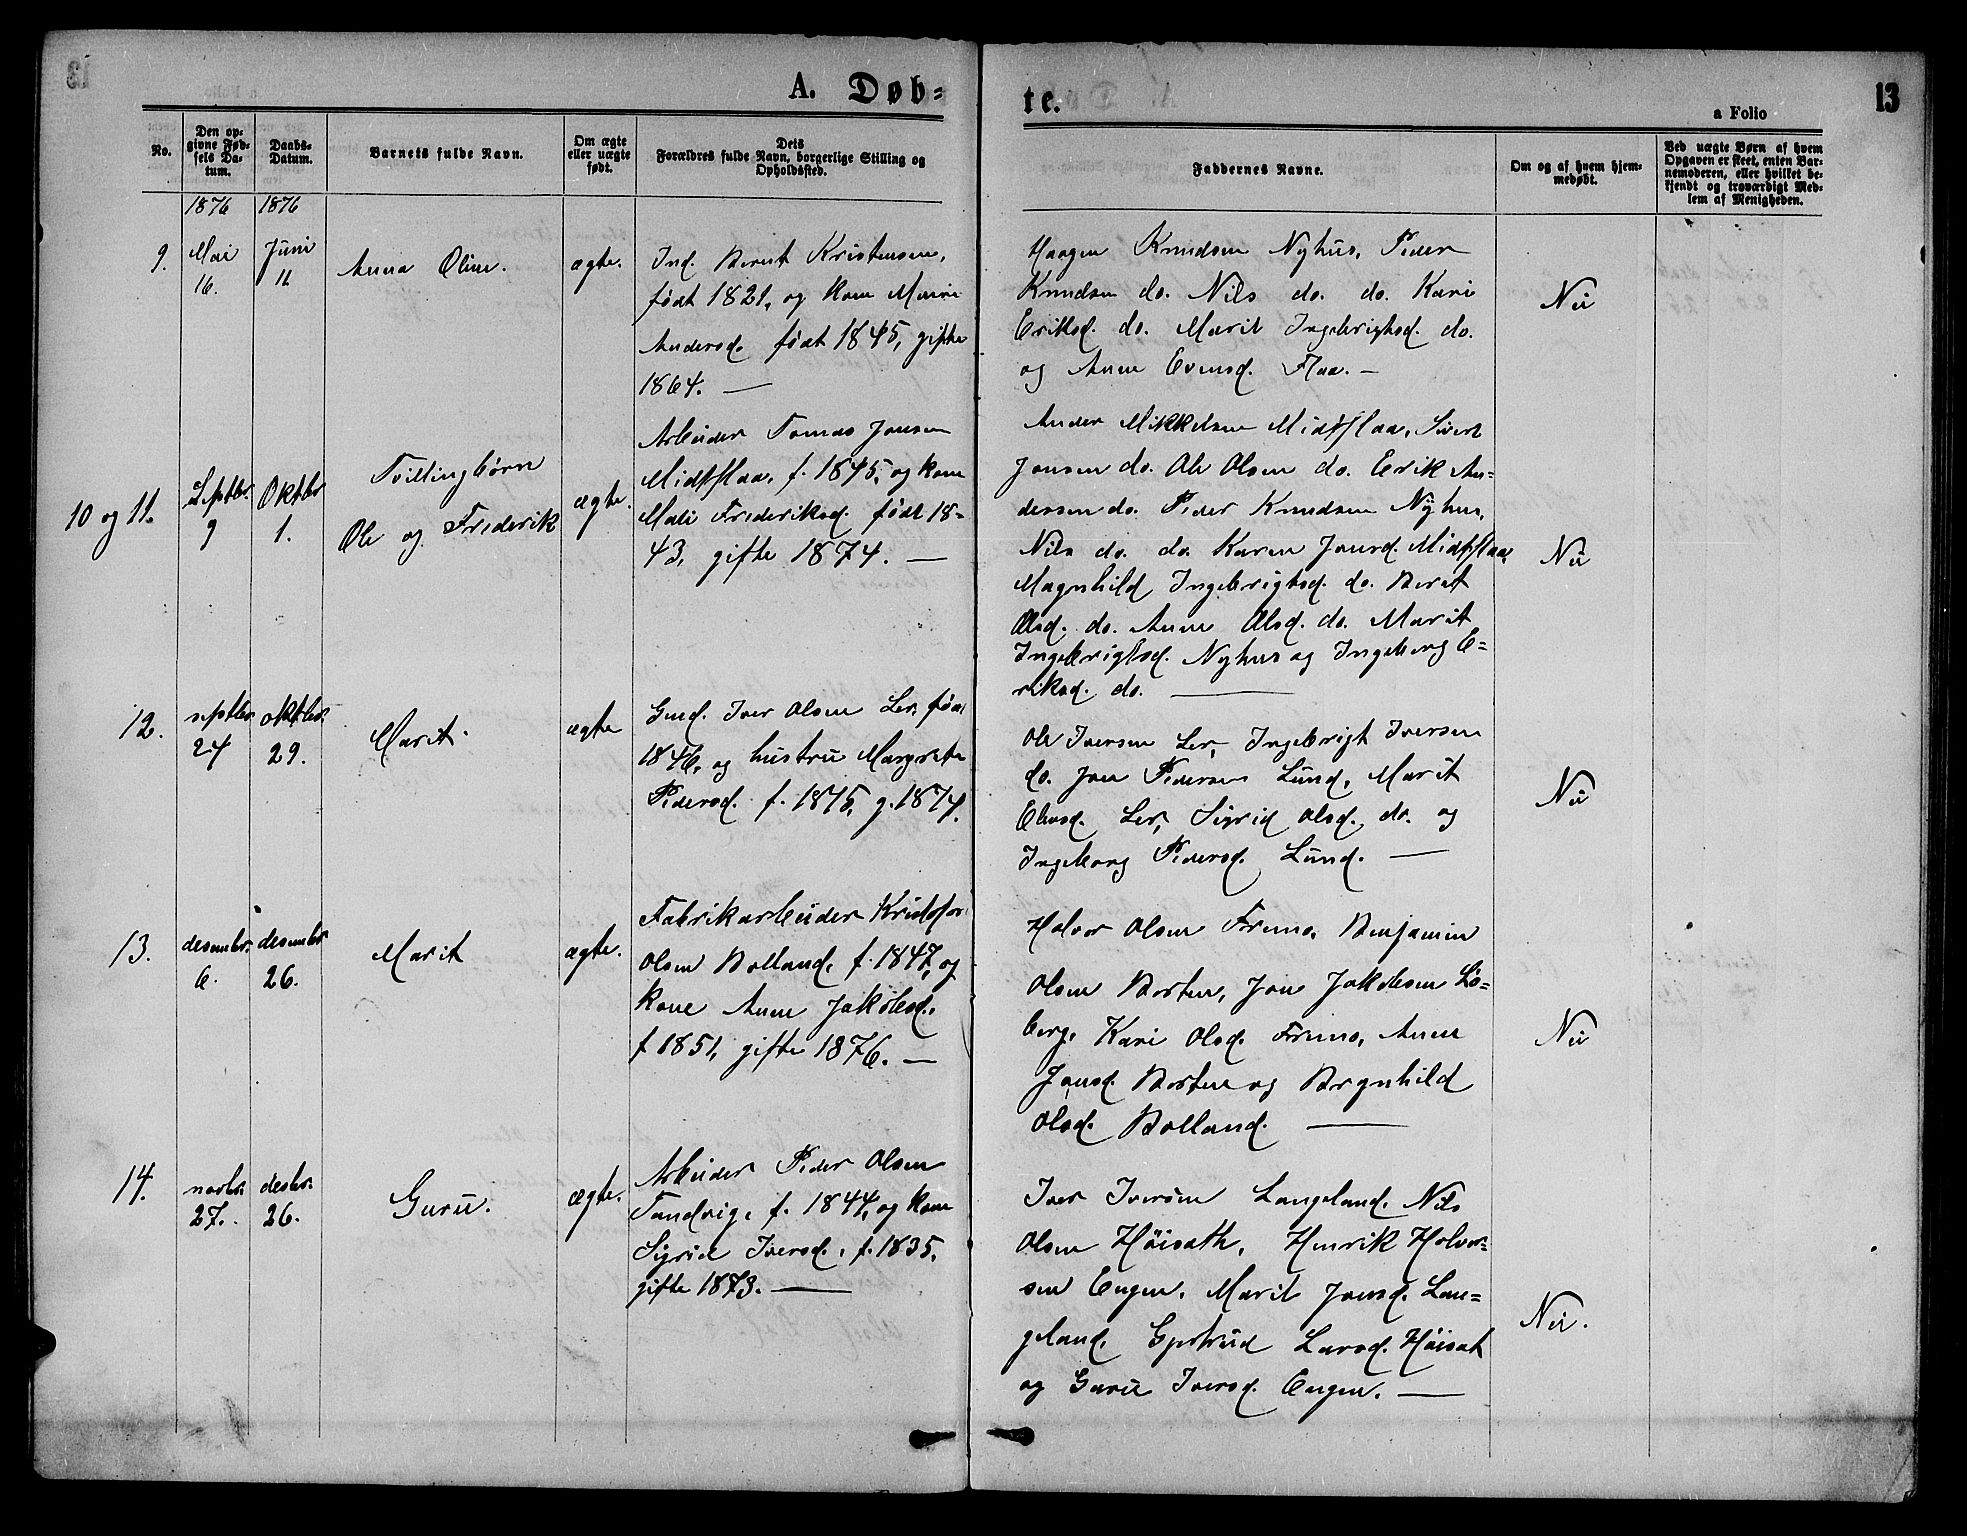 A. Døb=
te.
a Folio
13
No.
Den op=
givne Fød=
sels Da=
tum.
Daabs=
Datum.
Barnets fulde Navn.
Om ægte
eller uægte
født.
Dets
Forældres fulde Navn, borgerlige Stilling og
Opholdssted.
Faddernes Navne.
Om og af hvem hjem=
medøbt.
Ved uægte Børn af hvem
Opgaven er skeet, enten Bar=
nemoderen, eller hvilket be=
kjendt og troværdigt Med=
lem af Menigheden.
1876 1876
9.
Mai
16.
Juni
11
Anna Oline.
ægte.
Ind. Berut Kristensen,
født 1821, og kone Marie
Andersd. født 1845, gifte
1864. —
Haagen Knudsen Nyhus, Peder
Knudsen do. Nils do. do. Kari
Eriksd. do. Marit Ingebrigtsd. do.
og Anne Evensd. Flaa. —
Nei
10 og 11.
Septbr.
9
Oktbr
1.
Tvillingbørn
Ole og Frederik
ægte.
Arbeider Tomas Jonsen
Midtflaa, f. 1845, og kone
Mali Frederiksd. født 18-
43, gifte 1874. —
Anders Mikkelsen Midtflaa, Sivert
Jonsen do. Ole Olsen do. Erik An=
dersen do. Peder Knudsen Nyhus,
Nils do. do. Karen Jonsd. Midtflaa,
Magnhild Ingebrigtsd. do. Berit
Olsd. do. Anne Olsd. do. Marit
Ingebrigtsd. Nyhus og Ingeborg E=
riksd. do. —
Nei
12.
septbr.
24
oktbr.
29.
Marit.
ægte
Gmd. Iver Olsen Ler, født
1846, og hustru Margrete
Pedersd. f. 1875, g. 1874.
Ole Iversen Ler, Ingebrigt Iversen
do. Jon Pedersen Lund, Marit
Ellevsd. Ler, Sigrid Olsd. do. og
Ingeborg Pedersd. Lund. —
Nei
13.
desembr.
6.
desembr.
26.
Marit
ægte.
Fabrikarbeider Kristofor
Olsen Bolland, f. 1847, og
kone Anne Jakobsd.
f 1851, gifte 1876. —
Holvor Olsen Fremo, Benjamin
Olsen Borten, Jon Jakobsen Lø=
berg, Kari Olsd. Fremo, Anne
Jonsd. Borten og Brynhild
Olsd. Bolland. —
Nei
14.
novbr.
27.
desbr.
26.
Guru.
ægte.
Arbeider Peder Olsen
Tandvig, f. 1844, og kone
Sigrid Iversd., f. 1835,
gifte 1873. —
Iver Iversen Langeland, Nils
Olsen Høisath, Henrik Holvor=
sen Engen, Marit Jonsd. Lan=
geland, Gjertrud Larsd. Høisat
og Guru Iversd. Engen. —
Nei.